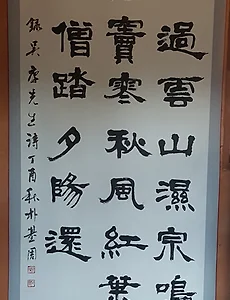 過雲山濕宗鳴
竇寒秋風紅葉
僧踏夕陽還
錄吳康先生詩丁酉秋朴基周